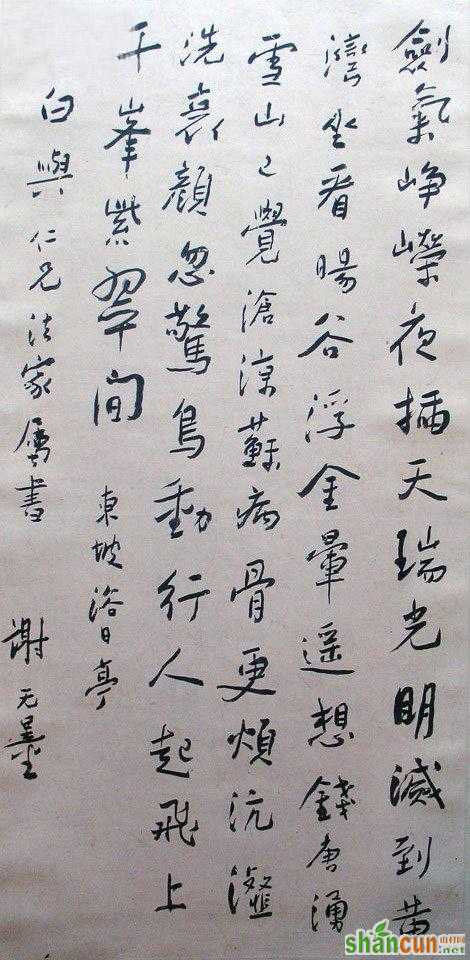 劍氣崢嶸夜插天瑞光明滅到黄
灣坐看暘谷浮金暈遥想錢唐湧
雪山已覺滄涼蘇病骨更煩沆瀣
洗衰顔忽驚鳥動行人起飛上
千峯紫翠間 東坡浴日亭
白與仁兄法家屬書 謝无量
shancun